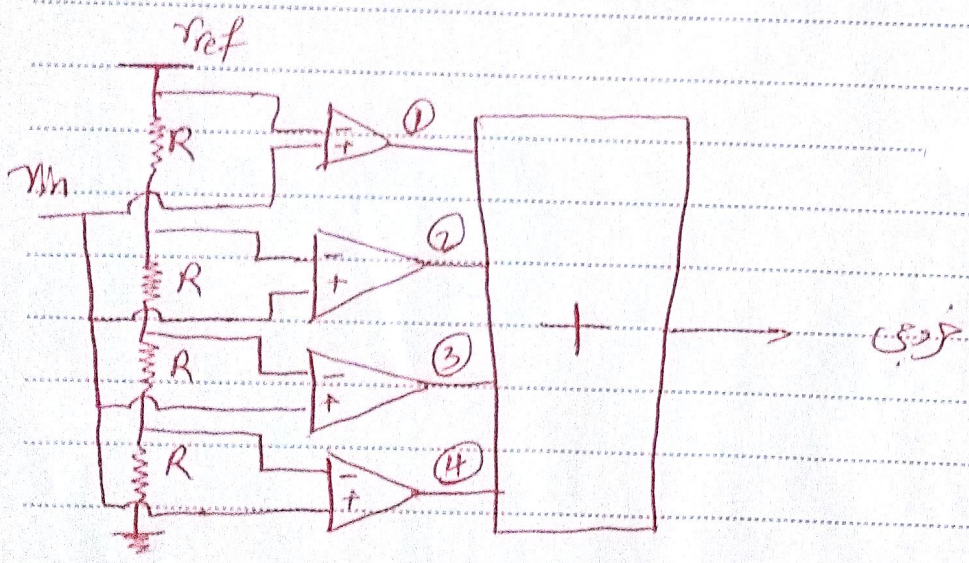 Vref
①
R
Vin
②
R
③
R
④
R
+
خروجی